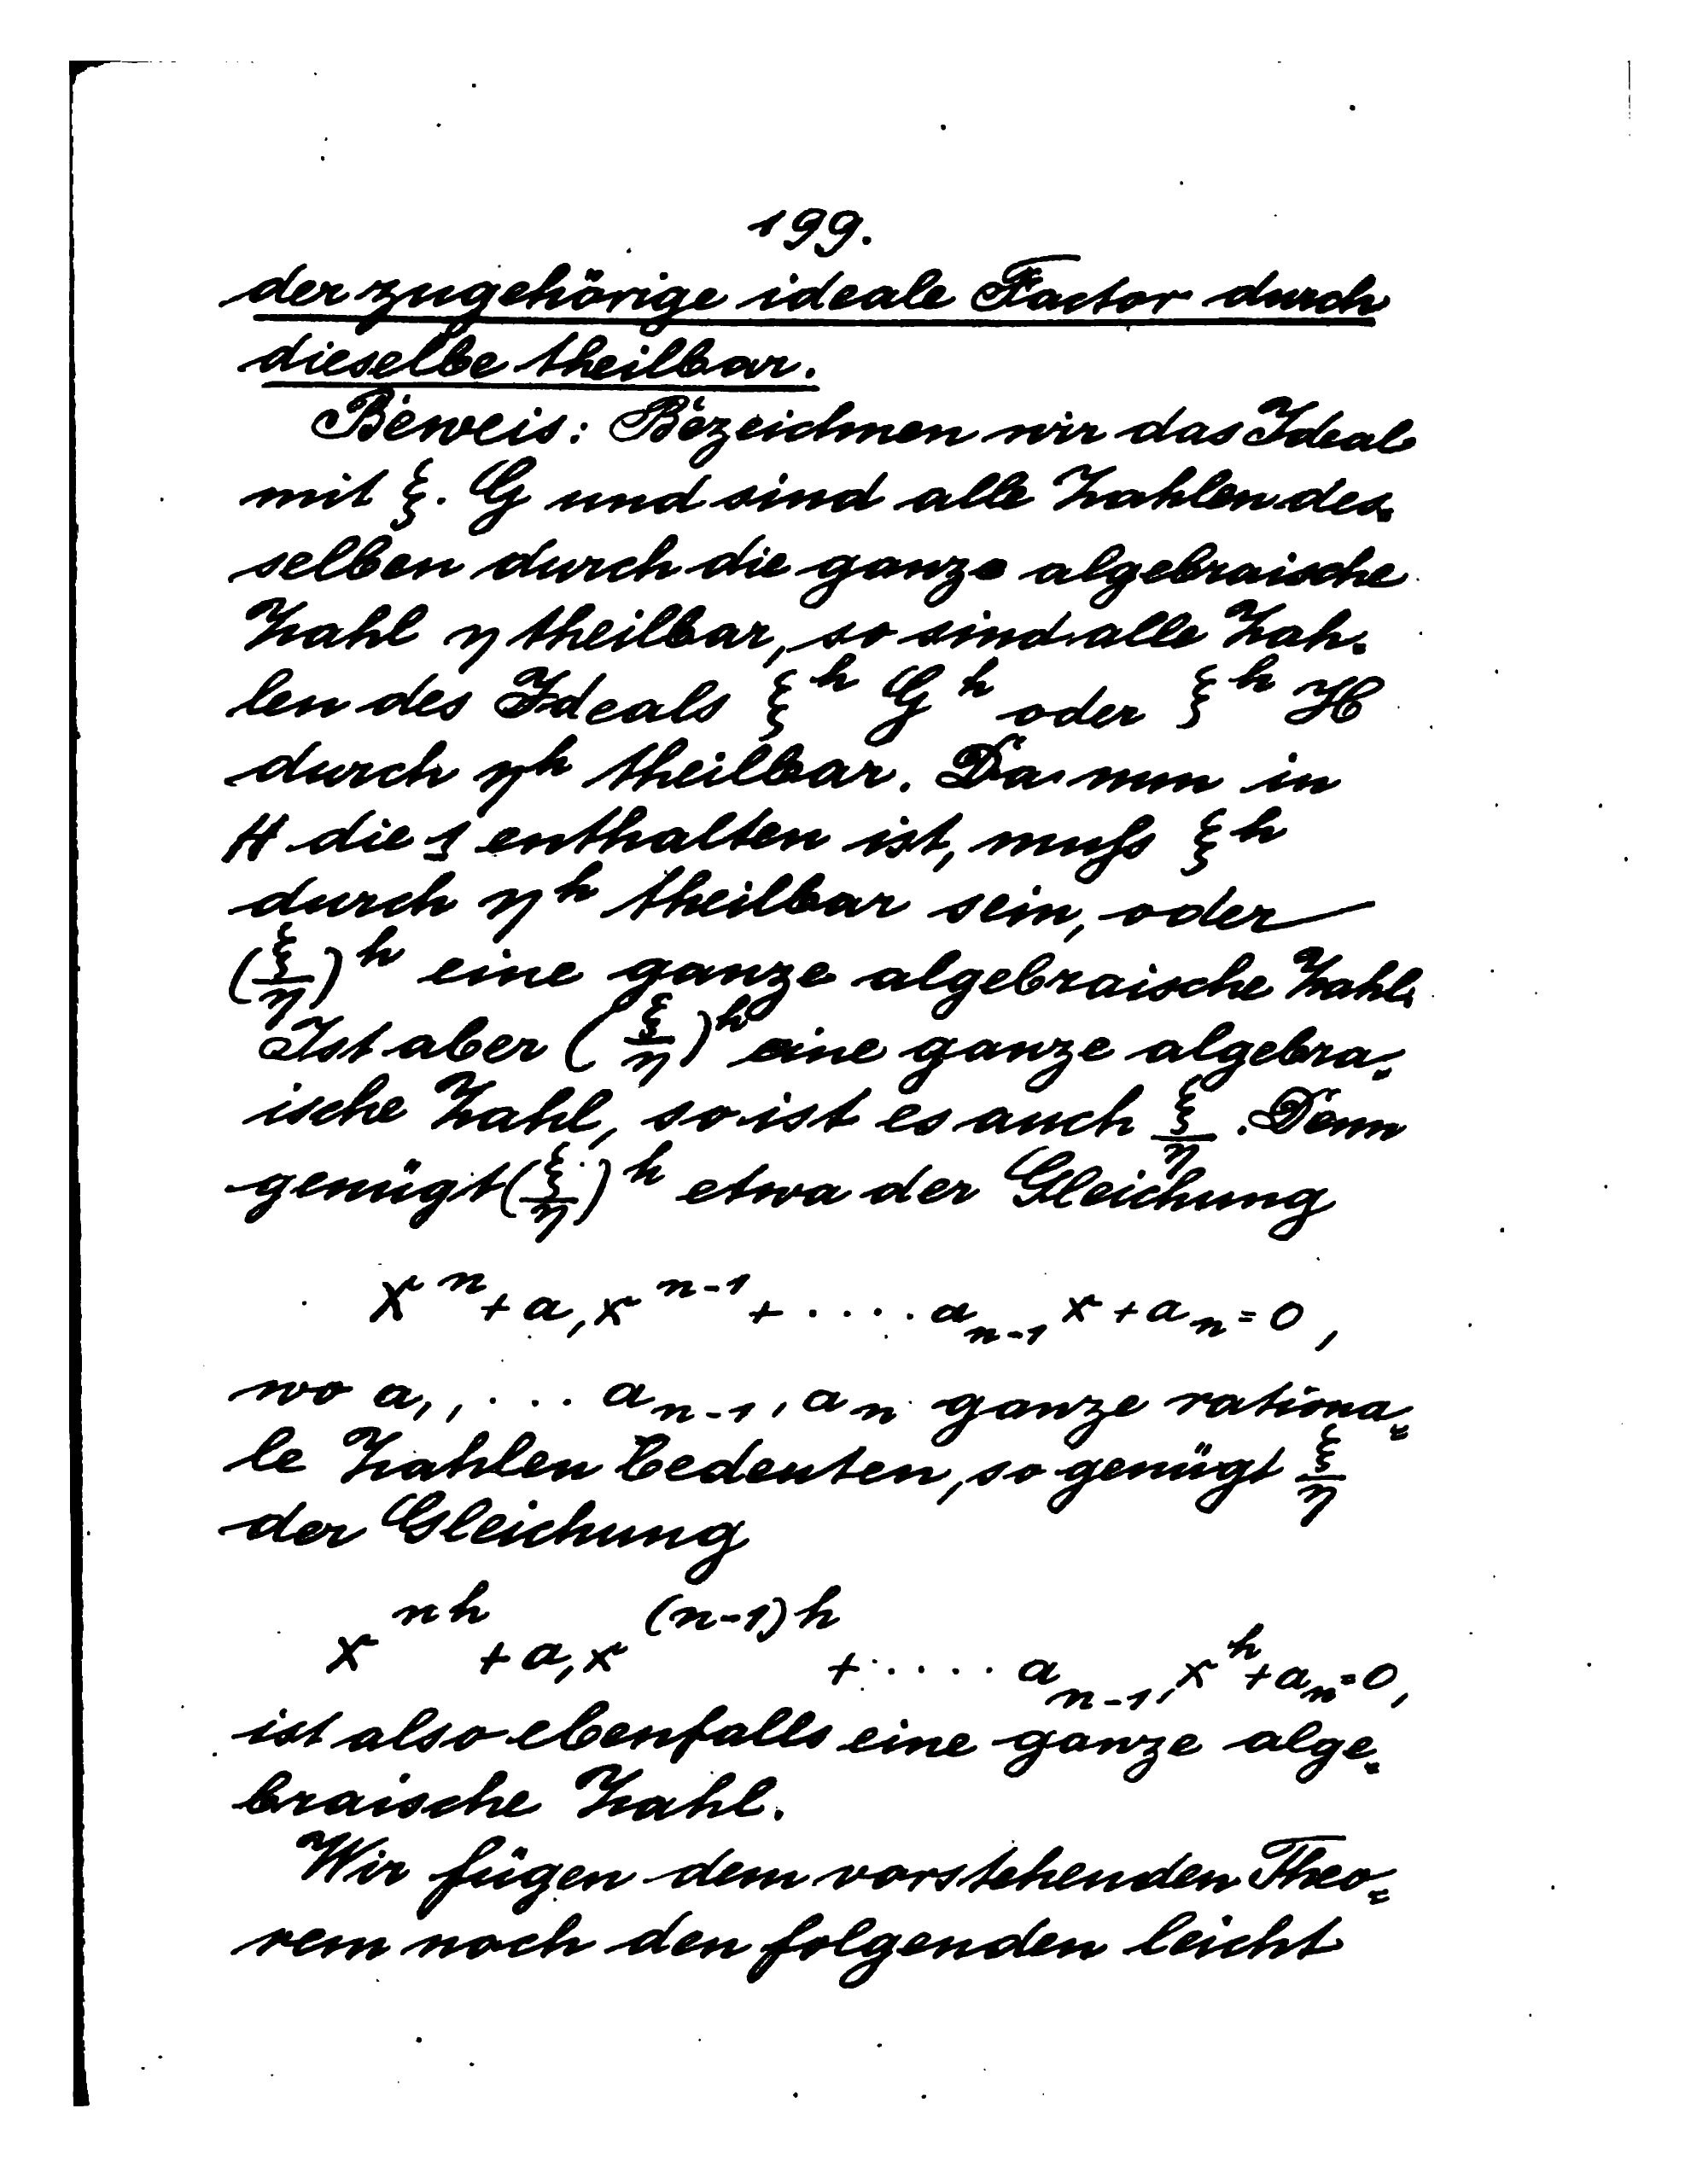 199.
der zugehörige ideale Factor durch
dieselbe theilbar.
Beweis: Bezeichnen wir das Ideal
mit ξ. G und sind alle Zahlen des-
selben durch die ganze algebraische
Zahl η theilbar, so sind alle Zah-
len des Ideals ξ^h G^h oder ξ^h H
durch η^h theilbar. Da nun in
H die 1 enthalten ist, muſs ξ^h
durch η^h theilbar sein, oder
(ξ/η)^h eine ganze algebraische Zahl.
Ist aber (ξ/η)^h eine ganze algebra-
ische Zahl, so ist es auch ξ/η. Denn
genügt (ξ/η)^h etwa der Gleichung
x^n + a_1 x^{n-1} + .... a_{n-1} x + a_n = 0,
wo a_1, ... a_{n-1}, a_n ganze rationa=
le Zahlen bedeuten, so genügt ξ/η
der Gleichung
x^{nh} + a_1 x^{(n-1)h} + ..... a_{n-1} x^h + a_n = 0,
ist also ebenfalls eine ganze alge-
braische Zahl.
Wir fügen dem vorstehenden Theo=
rem noch den folgenden leicht